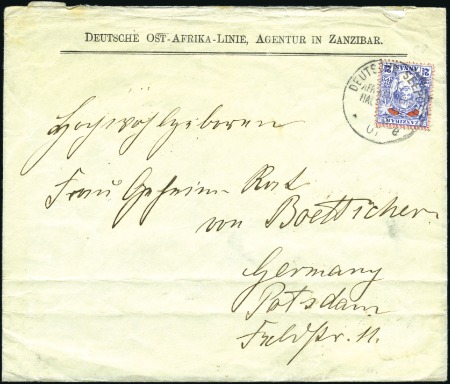 DEUTSCHE OST-AFRIKA-LINIE, AGENTUR IN ZANZIBAR.
DEUTSCHE SEE
ZANZIBAR
2½ ANNAS 2½
Hochwohlgeboren
Frau Geheim Rat
von Boetticher
Germany
Potsdam
Feldstr. 11.